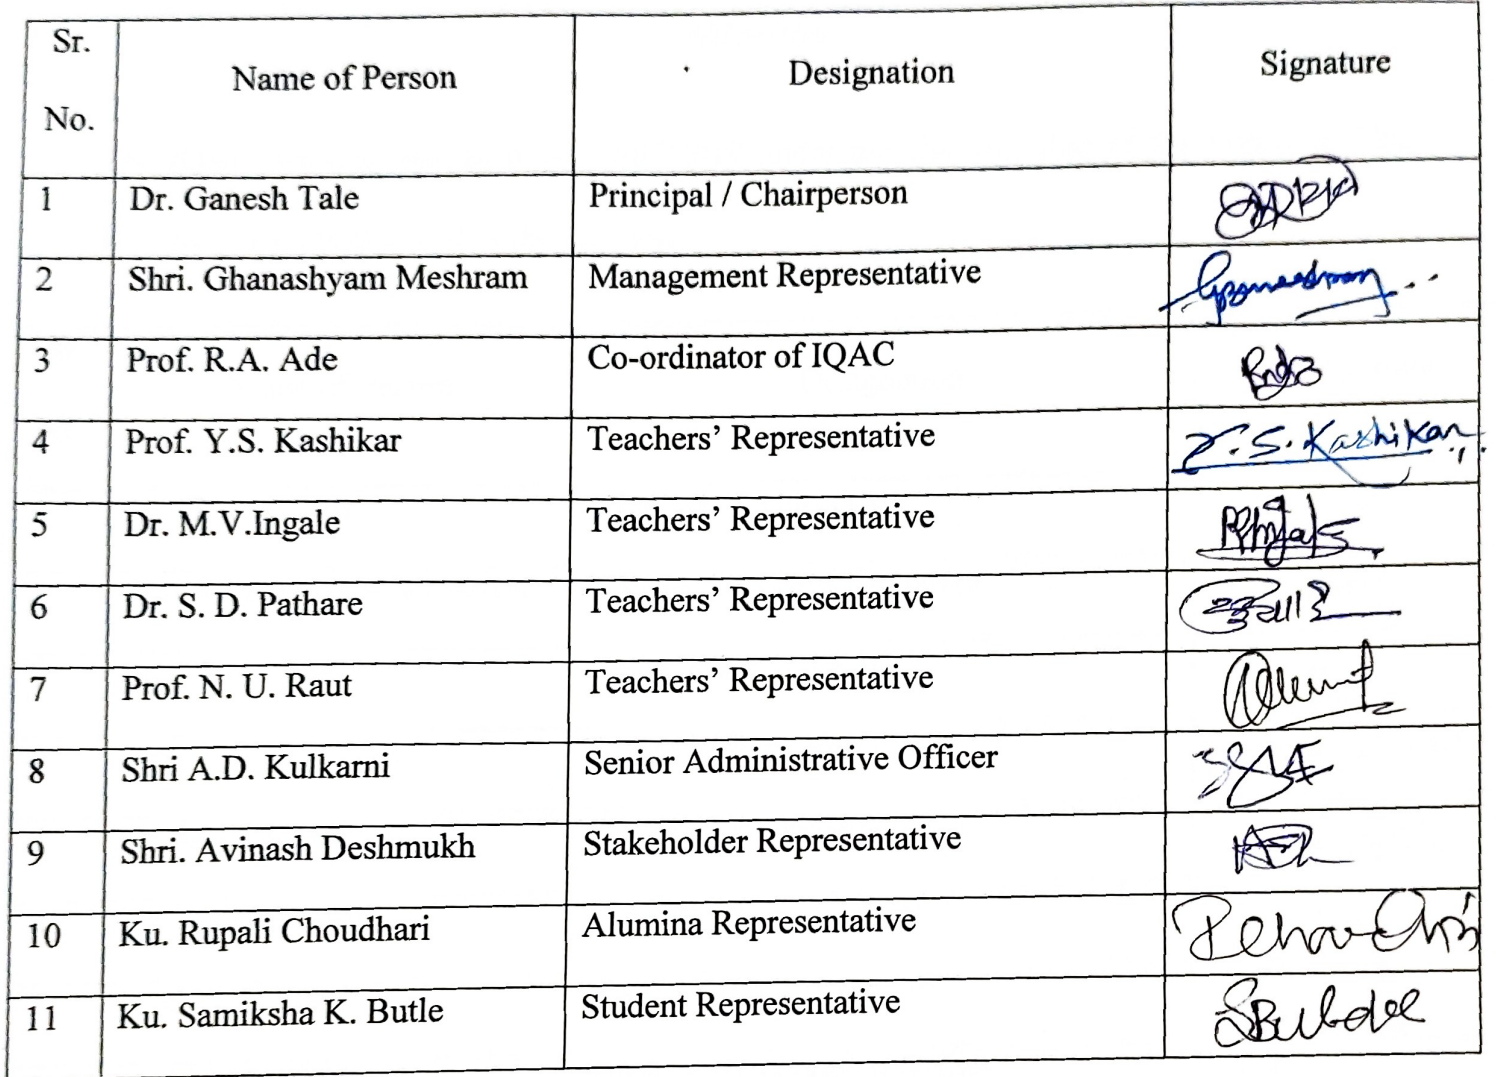 Sr.
No.
Name of Person
Designation
Signature
1 Dr. Ganesh Tale Principal / Chairperson
2 Shri. Ghanashyam Meshram Management Representative
3 Prof. R.A. Ade Co-ordinator of IQAC
4 Prof. Y.S. Kashikar Teachers’ Representative Y. S. Kashikar
5 Dr. M.V.Ingale Teachers’ Representative
6 Dr. S. D. Pathare Teachers’ Representative
7 Prof. N. U. Raut Teachers’ Representative
8 Shri A.D. Kulkarni Senior Administrative Officer
9 Shri. Avinash Deshmukh Stakeholder Representative
10 Ku. Rupali Choudhari Alumina Representative
11 Ku. Samiksha K. Butle Student Representative